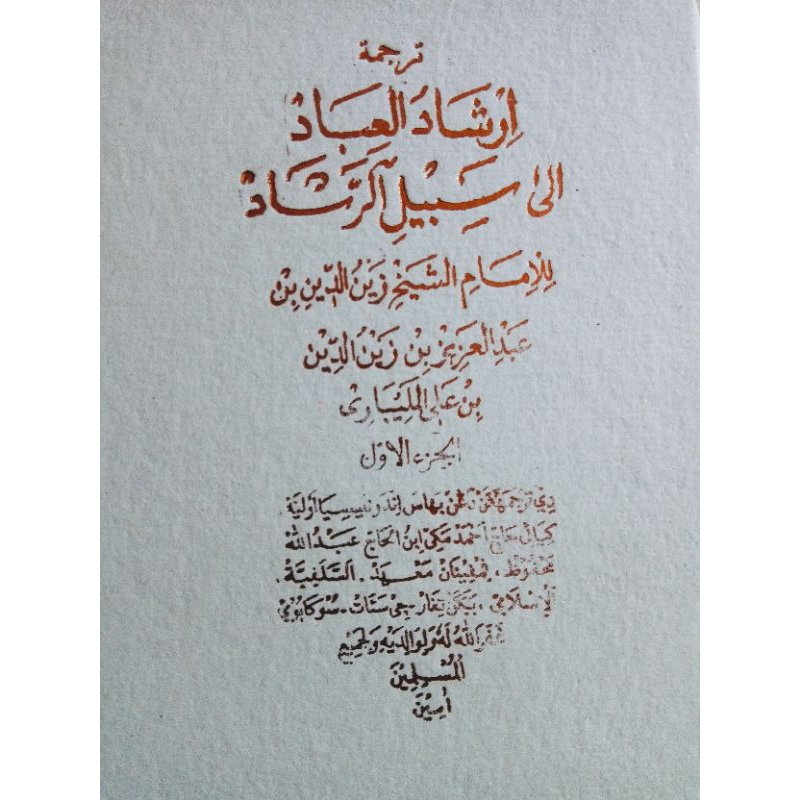 ترجمة
اِرْشَادُ العِبَادْ
الى سَبِيْلِ الرَّشَادْ
لِلْاِمَامِ الشَّيْخِ زَيْنُ الدِّيْنِ بِنْ
عَبْدِ الْعَزِيْزِ بِنْ زَيْنُ الدِّيْنْ
بِنْ عَلِي الْمَلَيْبَارِىْ
الجزء الاول
دي ترجمهكن دڠن بهاس اندونيسيا اوليه
كياى حاج احمد مكي ابن الحاج عبد الله
محفوظ. فمفينان معهد. السلفية.
الاسلامي. ببكن تفار - چي سئات - سوكابومي
غفر الله له ولوالديه ولجميع
المسلمين
امين